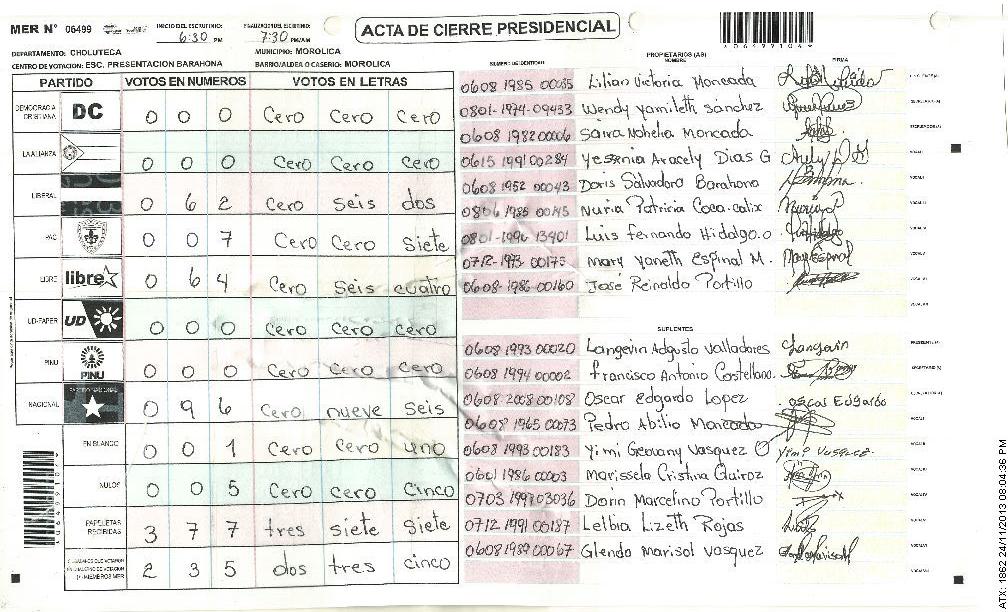 MER N° 06499
INICIO DEL ESCRUTINIO: 6:30 PM
FINALIZACION DEL ESCRUTINIO: 7:30 PM/AM
ACTA DE CIERRE PRESIDENCIAL
06499104
DEPARTAMENTO: CHOLUTECA
MUNICIPIO: MOROLICA
CENTRO DE VOTACION: ESC. PRESENTACION BARAHONA
BARRIO/ALDEA O CASERIO: MOROLICA
PARTIDO VOTOS EN NUMEROS VOTOS EN LETRAS
DEMOCRACIA CRISTIANA DC 0 0 0 Cero Cero Cero
LA ALIANZA 0 0 0 Cero Cero Cero
LIBERAL 0 6 2 Cero Seis dos
PAC 0 0 7 Cero Cero Siete
LIBRE libre 0 6 4 Cero Seis cuatro
UD-FAPER UD 0 0 0 Cero Cero Cero
PINU PINU 0 0 0 Cero Cero Cero
NACIONAL 0 9 6 Cero nueve Seis
EN BLANCO 0 0 1 Cero Cero uno
NULOS 0 0 5 Cero Cero Cinco
PAPELETAS RECIBIDAS 3 7 7 tres siete Siete
2 3 5 dos tres cinco
NUMERO DE IDENTIDAD PROPIETARIOS (AS) NOMBRE FIRMA
0608 1985 00085 Lilian Victoria Moncada
0801-1974-09433 Wendy Yamileth Sánchez
0608 1982 00006 Saira Nohelia Moncada
0615 1991 00284 Yesenia Aracely Dias G
0608 1952 00043 Doris Salvadora Barahona
0806 1985 00145 Nuria Patricia Coca calix
0801-1996 13401 Luis Fernando Hidalgo.o
0712-1973-00175 Mary Yaneth Espinal M.
0608-1986-00160 José Reinaldo Portillo
SUPLENTES
0608 1993 00020 Langerin Adgusto Valladores Langerin
0608 1994 00002 Francisco Antonio Castellano
0608 2008 00108 Oscar Edgardo Lopez Oscar Edgardo
0608 1965 00073 Pedro Abilio Moncada
0608 1993 00183 Yimi Geovany Vasquez Yimi Vasquez
0601 1986 00003 Marissela Cristina Quiroz
0703 1997 03036 Darin Marcelino Portillo
0712 1991 00187 Lelbia Lizeth Rojas
0608 1989 00067 Glenda Marisol Vasquez
06499104
ATX: 1862 24/11/2013 08:04:36 PM